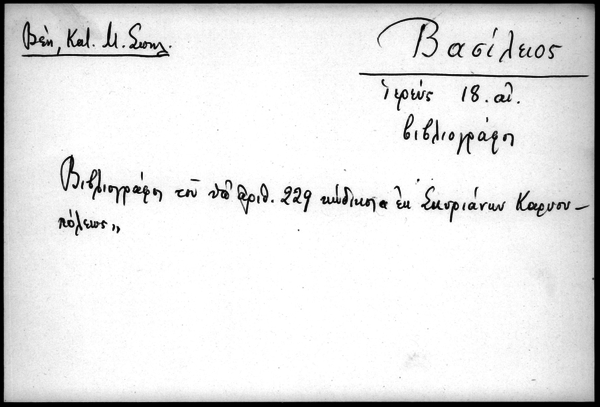 Βέη, Κατ. Μ. Σκηλ.
Βασίλειος
Ἱερεύς 18. αἰ.
βιβλιογράφοι
Βιβλιογράφοι τοῦ ὑπ' ἀριθ. 229 κώδικος ἐκ Σκυριάνων Καρυου–
πόλεως„